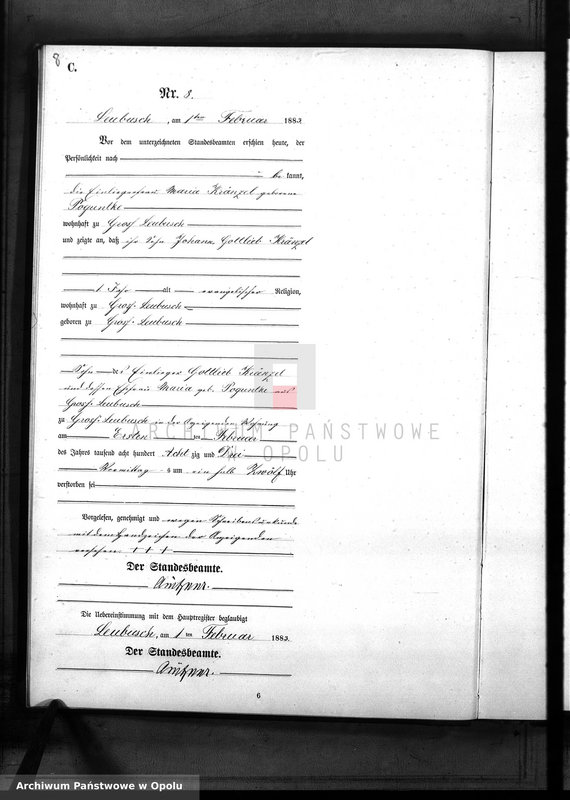 8
C.
Nr. 8.
Leubusch, am 1ten Februar 1883
Vor dem unterzeichneten Standesbeamten erschien heute, der
Persönlichkeit nach
be kannt,
die Einliegerfrau Maria Kränzel geborene
Poguntke
wohnhaft zu Groß Leubusch
und zeigte an, daß ihr Sohn Johann Gottlieb Kränzel
1 Jahr alt evangelischer Religion,
wohnhaft zu Groß Leubusch
geboren zu Groß Leubusch
Sohn des Einlieger Gottlieb Kränzel
und dessen Ehefrau Maria geb. Poguntke aus
Groß Leubusch
zu Groß Leubusch in der Anzeigenden Wohnung
am Ersten ten Februar
des Jahres tausend acht hundert Acht zig und Drei
Vormittag s um ein halb Zwölf Uhr
verstorben sei
Vorgelesen, genehmigt und wegen Schreibensunkunde
mit dem Handzeichen der Anzeigenden
versehen. + + +
Der Standesbeamte.
Die Uebereinstimmung mit dem Hauptregister beglaubigt
Leubusch, am 1 ten Februar 1883.
Der Standesbeamte.
6
ARCHIWUM PAŃSTWOWE
W OPOLU
Archiwum Państwowe w Opolu